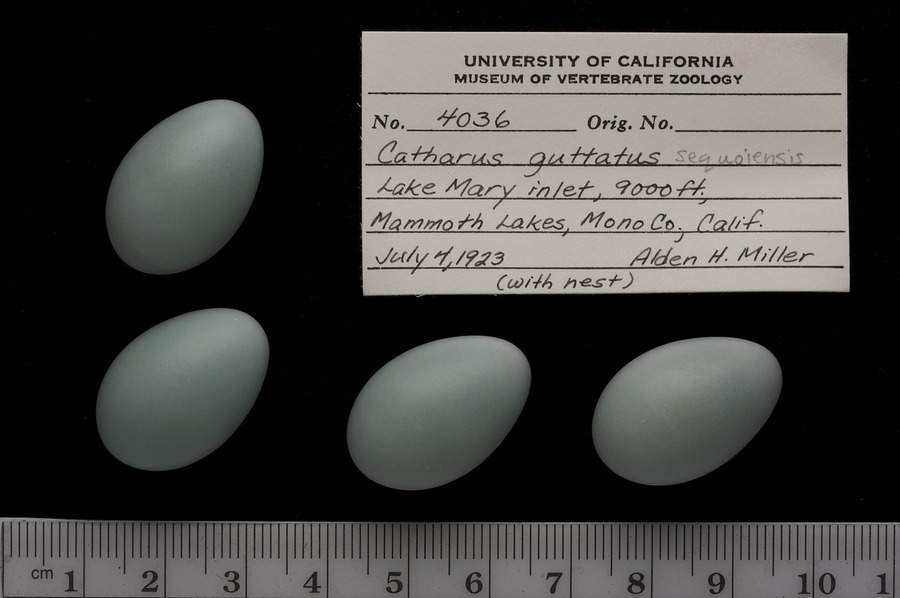 UNIVERSITY OF CALIFORNIA
MUSEUM OF VERTEBRATE ZOOLOGY
No. 4036 Orig. No.
Catharus guttatus sequoiensis
Lake Mary inlet, 9000 ft.,
Mammoth Lakes, Mono Co., Calif.
July 4, 1923 Alden H. Miller
(with nest)
cm 1 2 3 4 5 6 7 8 9 10 1